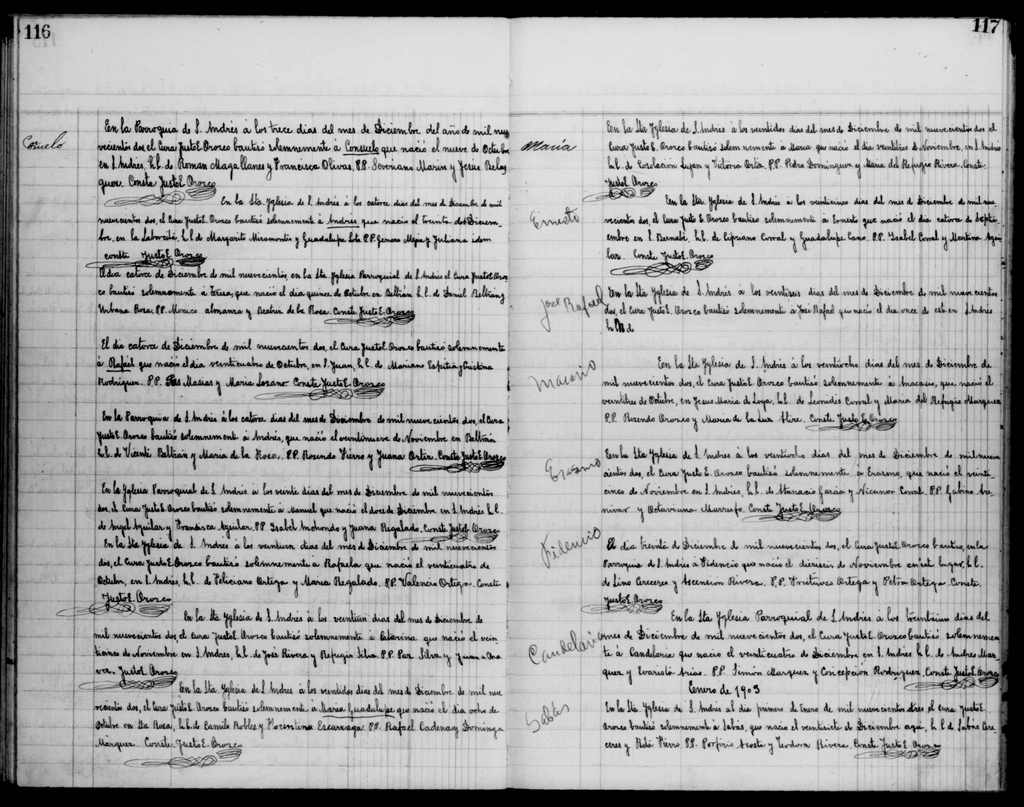 116
Consuelo
En la Parroquia de S. Andrés à los trece dias del mes de Diciembre del año de mil nue
vecientos dos, el Cura Justo E. Orozco bautisó solemnemente à Consuelo que nació el nueve de Octubre
en S. Andrés, h.l. de Roman Magallanes y Francisca Olivas, P.P. Severiano Marin y Jesus Relas
ques. Consta Justo E. Orozco
En la Sta. Yglesia de S. Andrés à los catorce dias del mes de Diciembre de mil
nuevecientos dos, el Cura Justo E. Orozco bautisó solemnemente à Andrés que nació el treinta de Diciem
bre, en la Laborcita, h.l. de Margarito Miramontes y Guadalupe P.P. Mejia y Juliana idem
consta Justo E. Orozco
A dia catorce de Diciembre de mil nuevecientos, en la Sta. Yglesia Parroquial de S. Andrés el Cura Justo E. Oroz
co bautisó solemnemente à que nació el dia quince de Octubre en Beltran h.l. de Beltran y
Urbana Rosa. P.P. Almanza y de la Rosa. Consta Justo E. Orozco
El dia catorce de Diciembre de mil nuevecientos dos, el Cura Justo E. Orozco bautisó solemnemente
à Rafael que nació el dia veinticuatro de Octubre, en S. Juan, h.l. de Mariano Espitia y Cristina
Rodriguez. P.P. Macias y Maria Lozano Consta Justo E. Orozco
En la Parroquia de S. Andrés à los catorce dias del mes de Diciembre de mil nuevecientos dos, el Cura
Justo E. Orozco bautisó solemnement à Andrés, que nació el veintinueve de Noviembre en Beltran
h.l. de Vicente Beltran y Maria de la Rosa. P.P. Rosendo Fierro y Juana Ortiz. Consta Justo E. Orozco
En la Yglesia Parroquial de S. Andrés à los veinte dias del mes de Diciembre de mil nuevecientos
dos, el Cura Justo E. Orozco bautisó solemnemente à Manuel que nació el doce de Diciembre en S. Andrés h.l.
de Angel Aguilar y Francisca Aguilar. P.P. Isabel Anchondo y Juana Regalado. Consta Justo E. Orozco
En la Sta. Yglesia de S. Andrés à los veintiun dias del mes de Diciembre de mil nuevecientos
dos, el Cura Justo E. Orozco bautisó solemnemente à Rafaela que nació el veinticuatro de
Octubre, en S. Andrés, h.l. de Feliciano Ortega y Maria Regalado. P.P. Valencia Ortega. Consta
Justo E. Orozco
En la Sta. Yglesia de S. Andrés à los veintiun dias del mes de Diciembre de
mil nuevecientos dos, el Cura Justo E. Orozco bautisó solemnemente à Catarina que nació el vein
de Noviembre en S. Andrés, h.l. de José Rivera y Refugio Silva. P.P. Paz Silva y Juana Na
va. Justo E. Orozco
En la Sta. Yglesia de S. Andrés à los veintidos dias del mes de Diciembre de mil nue
vecientos dos, el Cura Justo E. Orozco bautisó solemnemente à Maria Guadalupe que nació el dia ocho de
Octubre en Sta. Rosa, h.l. de Camilo Robles y Florentina Escarzaga P.P. Rafael Cadena y Dominga
Marquez. Consta Justo E. Orozco
117
Maria
En la Sta. Yglesia de S. Andrés à los veintidos dias del mes de Diciembre de mil nuevecientos dos el
Cura Justo E. Orozco bautisó solemnemente à Maria que nació el dia veintidos de Noviembre, en S. Andrés
h.l. de Lujan y Victoria Ortiz. P.P. Pedro Dominguez y Maria del Refugio Rivera. Consta
Justo E. Orozco
Ernesto
En la Sta. Yglesia de S. Andrés à los veinticinco dias del mes de Diciembre de mil nue
vecientos dos, el Cura Justo E. Orozco bautisó solemnemente à Ernesto que nació el dia catorce de Septi
embre en S. Bernabé, h.l. de Cipriano Corral y Guadalupe Cano. P.P. Isabel Corral y Martina Agui
lar. Consta Justo E. Orozco
José Rafael
En la Sta. Yglesia de S. Andrés à los veintiseis dias del mes de Diciembre de mil nuevecientos
dos, el Cura Justo E. Orozco bautisó solemnemente à José Rafael que nació el dia once de en S. Andrés
h. l. d
Macario
En la Sta. Yglesia de S. Andrés à los veintiocho dias del mes de Diciembre de
mil nuevecientos dos, el Cura Justo E. Orozco bautisó solemnemente à Macario, que nació el
veintitres de Octubre, en Jesus Maria de Loya, h.l. de Leonides Corral y Maria del Refugio Marquez
P.P. Rosendo Orozco y Maria de la Luz Consta Justo E. Orozco
Erasmo
En la Sta. Yglesia de S. Andrés à los veintiocho dias del mes de Diciembre de mil nueve
cientos dos, el Cura Justo E. Orozco bautisó solemnemente à Erasmo, que nació el veinti
cinco de Noviembre en S. Andrés, h.l. de Atanacio Garcia y Nicanor Corral. P.P. Gabino Are
nivar y Octaviana Murrufo. Consta Justo E. Orozco
Fidencio
El dia treinta de Diciembre de mil nuevecientos dos, el Cura Justo E. Orozco bautisó, en la
Parroquia de S. Andrés à Fidencio que nació el dieciseis de Noviembre en el lugar, h.l.
de Lino Cereceres y Ascension Rivera. P.P. Ortega y Petra Ortega. Consta.
Justo E. Orozco
Candelario
En la Sta. Yglesia Parroquial de S. Andrés à los treintaiun dias del
mes de Diciembre de mil nuevecientos dos, el Cura Justo E. Orozco bautisó solemnemen
te à Candelario que nació el veinticuatro de Diciembre en S. Andrés h.l. de Andres Mar
quez y Arias. P.P. Simón Marquez y Concepción Rodriguez. Consta Justo E. Orozco
Enero de 1903
Sabás
En la Sta. Yglesia de S. Andrés al dia primero de Enero de mil nuevecientos dres el Cura Justo E.
Orozco bautisó solemnemente à Sabás, que nació el veintisiete de Diciembre aqui, h.l. de Cere
ceres y Fierro. P.P. Porfirio Acosta y Teodora Rivera. Consta Justo E. Orozco